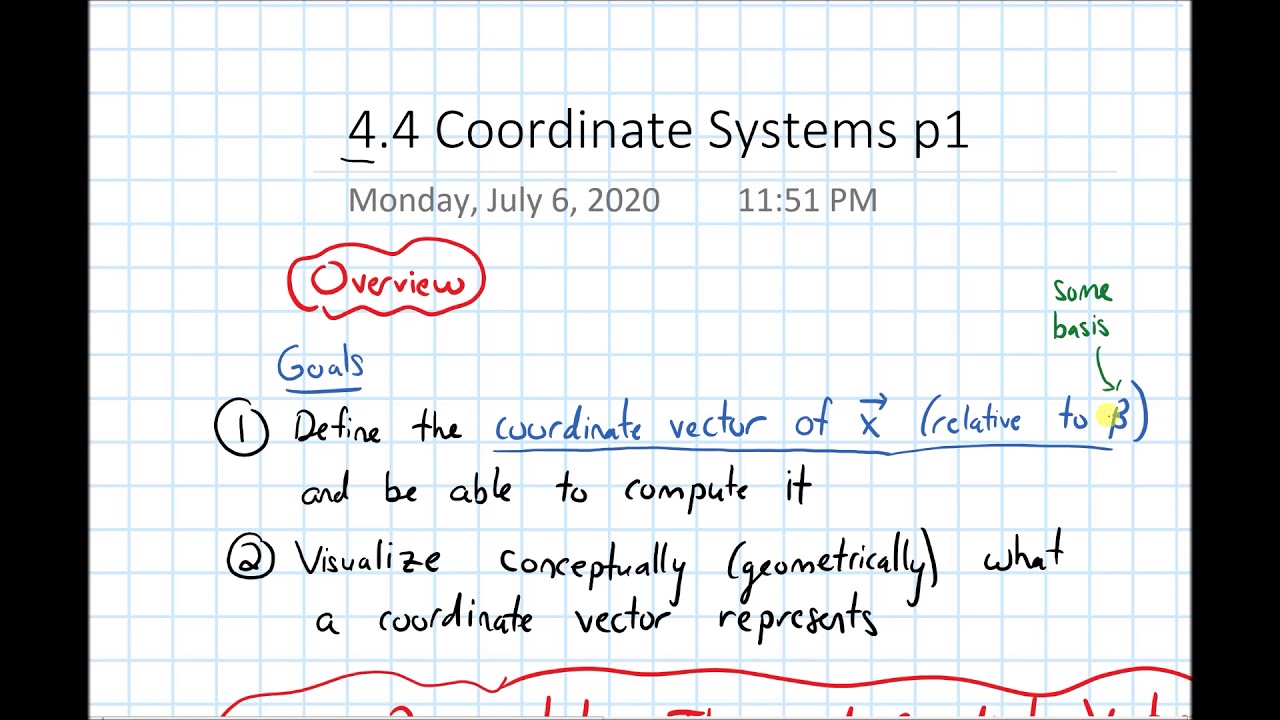 4.4 Coordinate Systems p1
Monday, July 6, 2020 11:51 PM
Overview
some
basis
Goals
① Define the coordinate vector of x⃗ (relative to β)
and be able to compute it
② Visualize conceptually (geometrically) what
a coordinate vector represents